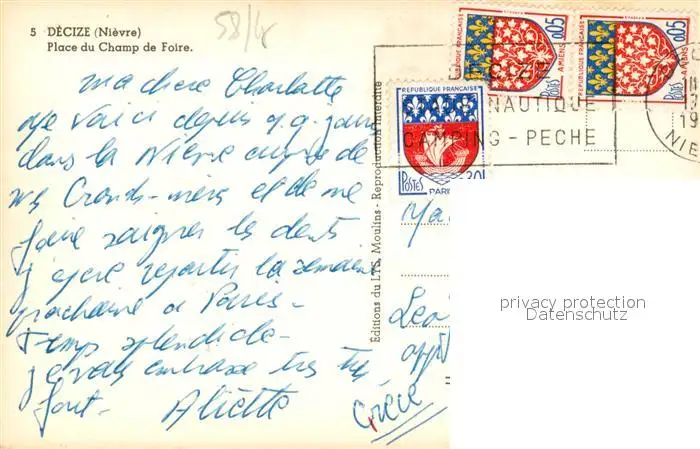 5 DÉCIZE (Nièvre)
Place du Champ de Foire.
58/4
Ma chère Charlotte
Me voici depuis q.q. jours
dans la Nièvre auprès de
mes Grands-mères et de me
faire soigner les dents
j'espère repartir la semaine
prochaine à Paris-
Temps splendide-
je vous embrasse très très
fort- Aliette
Éditions du LYS, Moulins - Reproduction interdite
REPUBLIQUE FRANÇAISE
0,05
POSTES
AMIENS
REPUBLIQUE FRANÇAISE
0,05
POSTES
AMIENS
REPUBLIQUE FRANÇAISE
POSTES
PARIS
0,30
DECIZE
NAUTIQUE
CAMPING - PECHE
19
NIE
Grèce
privacy protection
Datenschutz